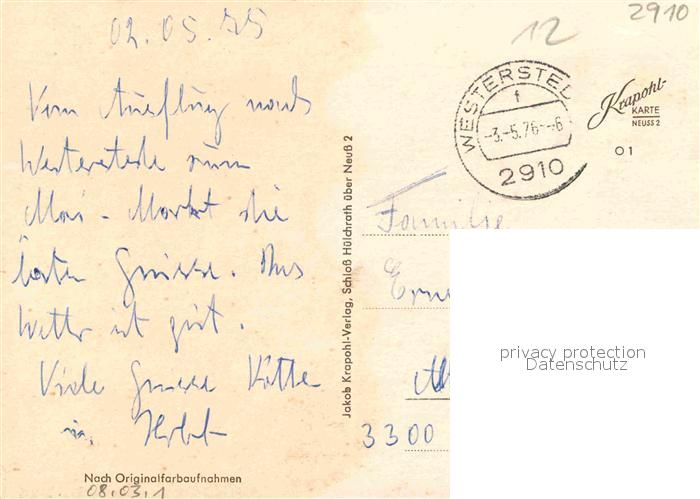 02.05.75
Vom Ausflug nach
Westerstede zum
Mai-Markt die
besten Grüsse. Das
Wetter ist gut.
Viele Grüsse Käthe
u. Herbert
Nach Originalfarbaufnahmen
08.03.1
Jakob Krapohl-Verlag, Schloß Hülchrath über Neuß 2
12
2910
WESTERSTED
f
-3.-5.76--6
2910
Krapohl-
KARTE
NEUSS 2
01
Familie
3300
privacy protection
Datenschutz